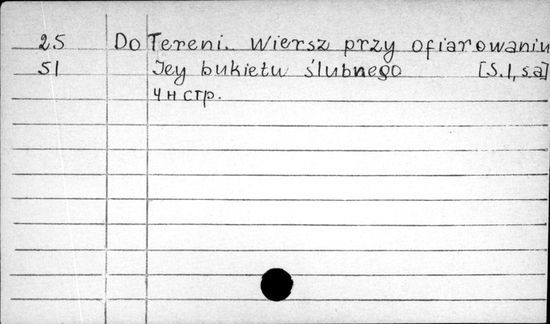 25 Do Tereni. Wiersz przy ofiarowaniu
51 Jey bukietu ślubnego [S.l, s.a]
4 н стр.